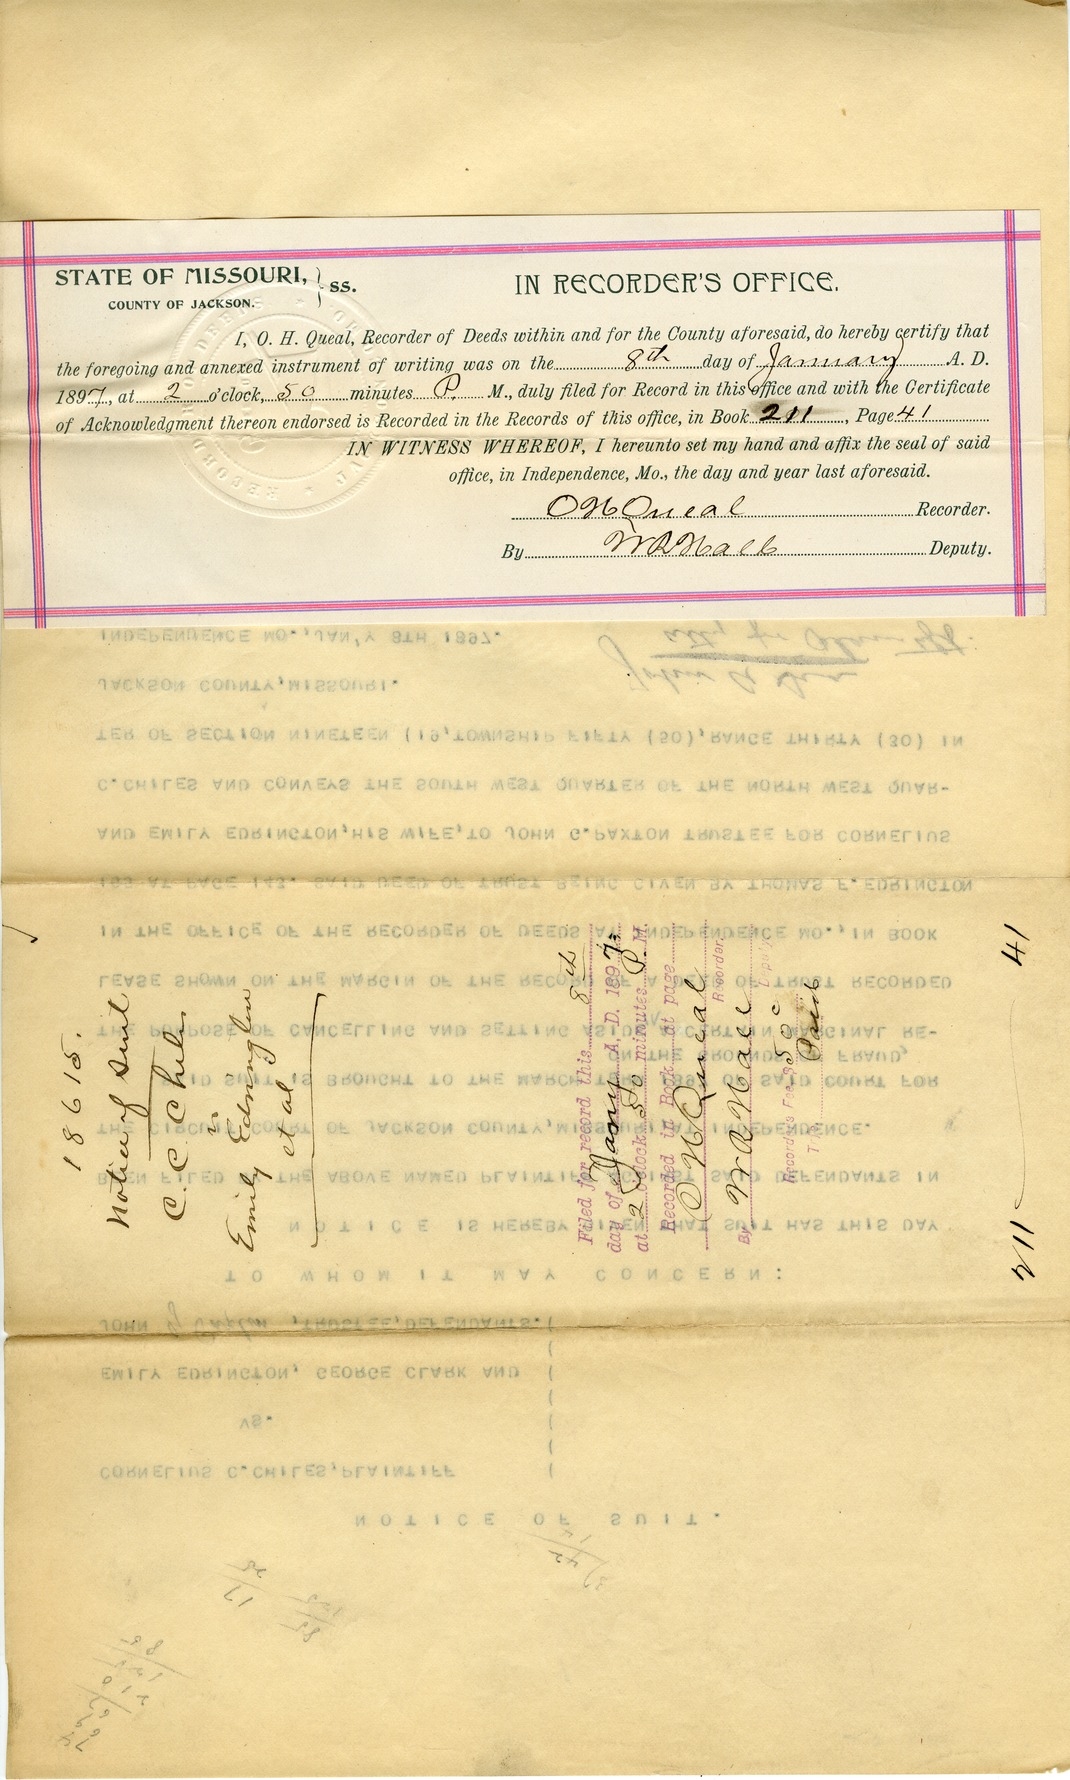 STATE OF MISSOURI, } ss.
COUNTY OF JACKSON.
IN RECORDER'S OFFICE.
I, O. H. Queal, Recorder of Deeds within and for the County aforesaid, do hereby certify that
the foregoing and annexed instrument of writing was on the 8th day of January A. D.
1897, at 2 o'clock, 50 minutes P. M., duly filed for Record in this office and with the Certificate
of Acknowledgment thereon endorsed is Recorded in the Records of this office, in Book 211, Page 41
IN WITNESS WHEREOF, I hereunto set my hand and affix the seal of said
office, in Independence, Mo., the day and year last aforesaid.
O H Queal Recorder.
By W R Hall Deputy.
18615.
Notice of Suit
C. C. Chiles
vs
Emily Edrington
et al
Filed for record this 8th
day of Jany A. D. 1897
at 2 o'clock 50 minutes P. M.
Recorded in Book at page
O H Queal
Recorder.
By W R Hall
Deputy.
Recorder's Fee, $ 50c
Paid
211 — 41
NOTICE OF SUIT.
CORNELIUS C. CHILES, PLAINTIFF (
VS. (
EMILY EDRINGTON, GEORGE CLARK AND (
JOHN G Paxton, TRUSTEE, DEFENDANTS. (
TO WHOM IT MAY CONCERN:
NOTICE IS HEREBY GIVEN THAT SUIT HAS THIS DAY
BEEN FILED BY THE ABOVE NAMED PLAINTIFF AGAINST SAID DEFENDANTS IN
THE CIRCUIT COURT OF JACKSON COUNTY, MISSOURI, AT INDEPENDENCE.
SAID SUIT IS BROUGHT TO THE MARCH TERM 1897 OF SAID COURT FOR
ON THE GROUND OF FRAUD,
THE PURPOSE OF CANCELLING AND SETTING ASIDE A CERTAIN MARGINAL RE-
LEASE SHOWN ON THE MARGIN OF THE RECORD OF A DEED OF TRUST RECORDED
IN THE OFFICE OF THE RECORDER OF DEEDS AT INDEPENDENCE MO., IN BOOK
AT PAGE 143. SAID DEED OF TRUST BEING GIVEN BY THOMAS F. EDRINGTON
AND EMILY EDRINGTON, HIS WIFE, TO JOHN G. PAXTON TRUSTEE FOR CORNELIUS
C. CHILES AND CONVEYS THE SOUTH WEST QUARTER OF THE NORTH WEST QUAR-
TER OF SECTION NINETEEN (19, TOWNSHIP FIFTY (50), RANGE THIRTY (30) IN
JACKSON COUNTY, MISSOURI.
INDEPENDENCE MO., JAN'Y 8TH 1897.